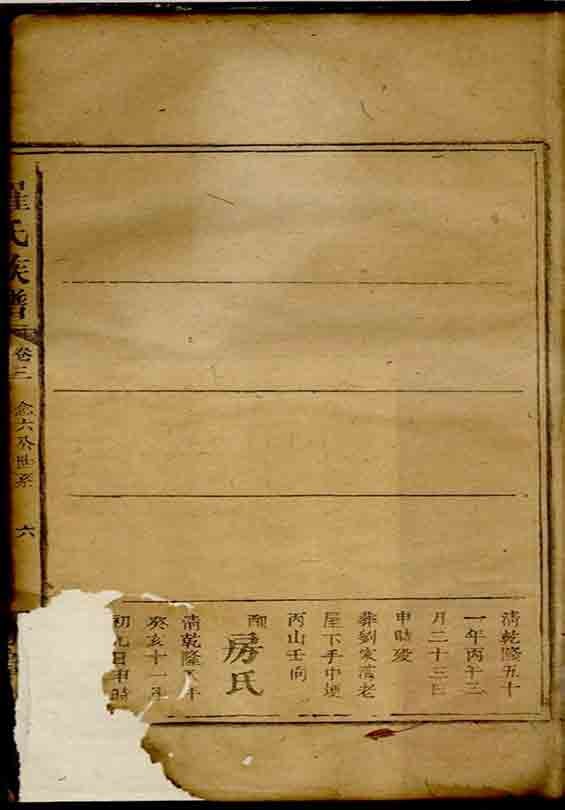 清乾隆五十
一年丙午二
月二十三日
申時歿
葬劉家灣老
屋下手中堘
丙山壬向
配
房氏
清乾隆八年
癸亥十一月
初九日申時
羅氏族譜
卷三
念六公世系
六